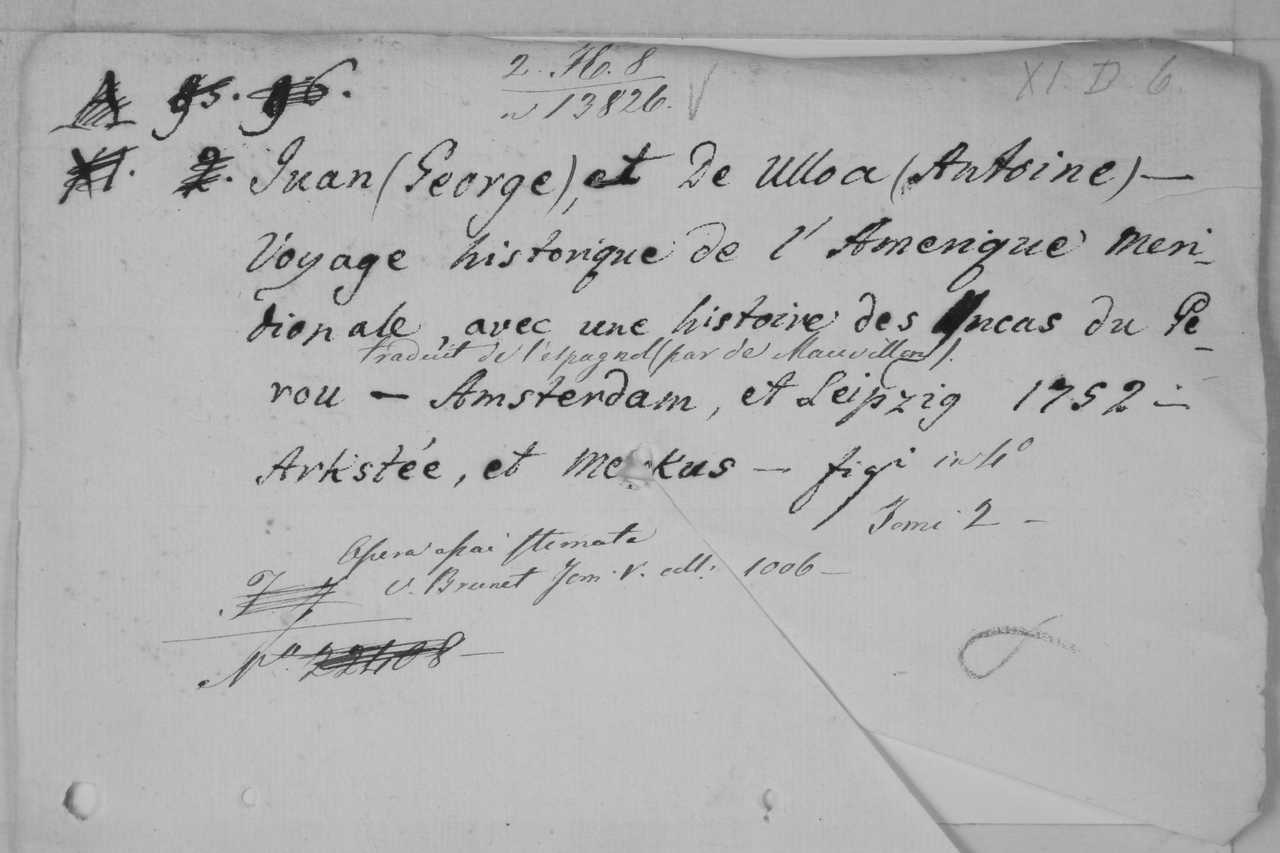 2. H. 8
XI. D. 6.
A 95. 96.
n 13826.
XI. 2. Juan (George), et De Ulloa (Antoine) —
Voyage historique de l'Amerique meri-
dionale, avec une histoire des Yncas du Pe-
traduit de l'espagnol (par de Mauvillon).
rou — Amsterdam, et Leipzig 1752 —
Arkstée, et Merkus — figi in 4°
Tomi 2 —
Opera assai stimata
v. Brunet Tom. V. all: 1006 —
N° 22408 —